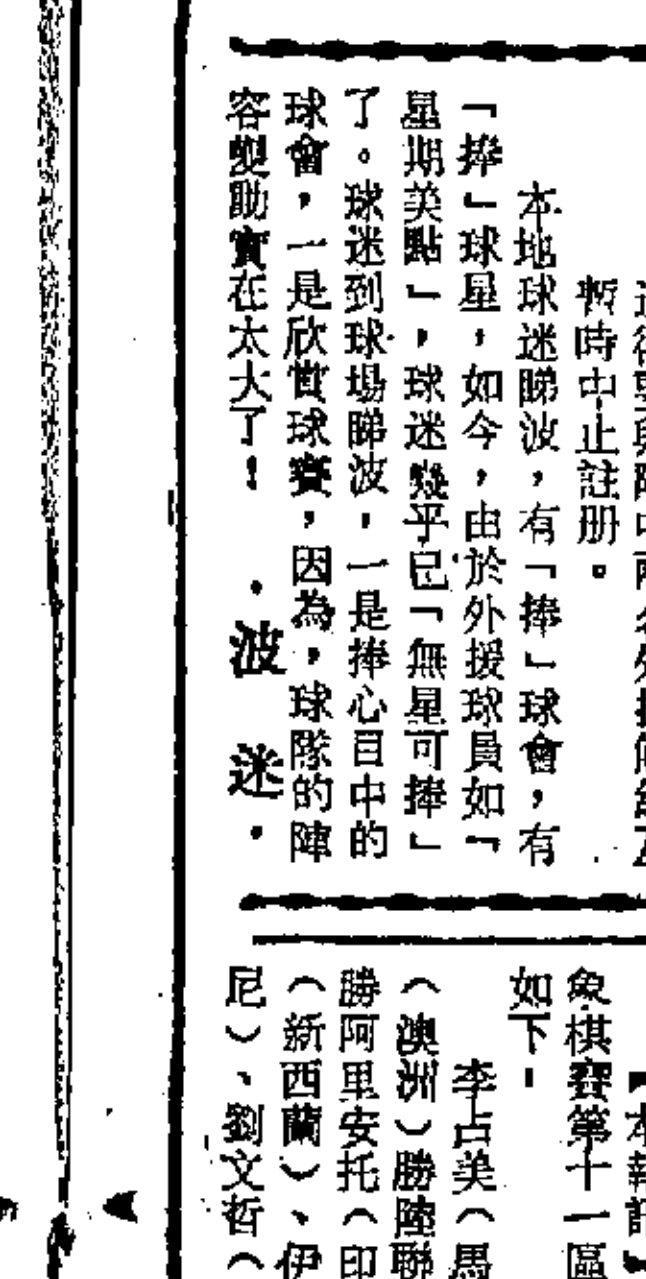 暫時中止註册。
本地球迷睇波，有「捧」球會，有
「捧」球星，如今，由於外援球員如「
星期美點」，球迷幾乎已「無星可捧」
了。球迷到球場睇波，一是捧心目中的
球會，一是欣賞球賽，因為，球隊的陣
容變動實在太大了！
·波　迷·
本報訊
象棋賽第十一區
如下：
李占美（馬
（澳洲）勝陸聯
勝阿里安托（印
（新西蘭）、伊
尼）、劉文哲（